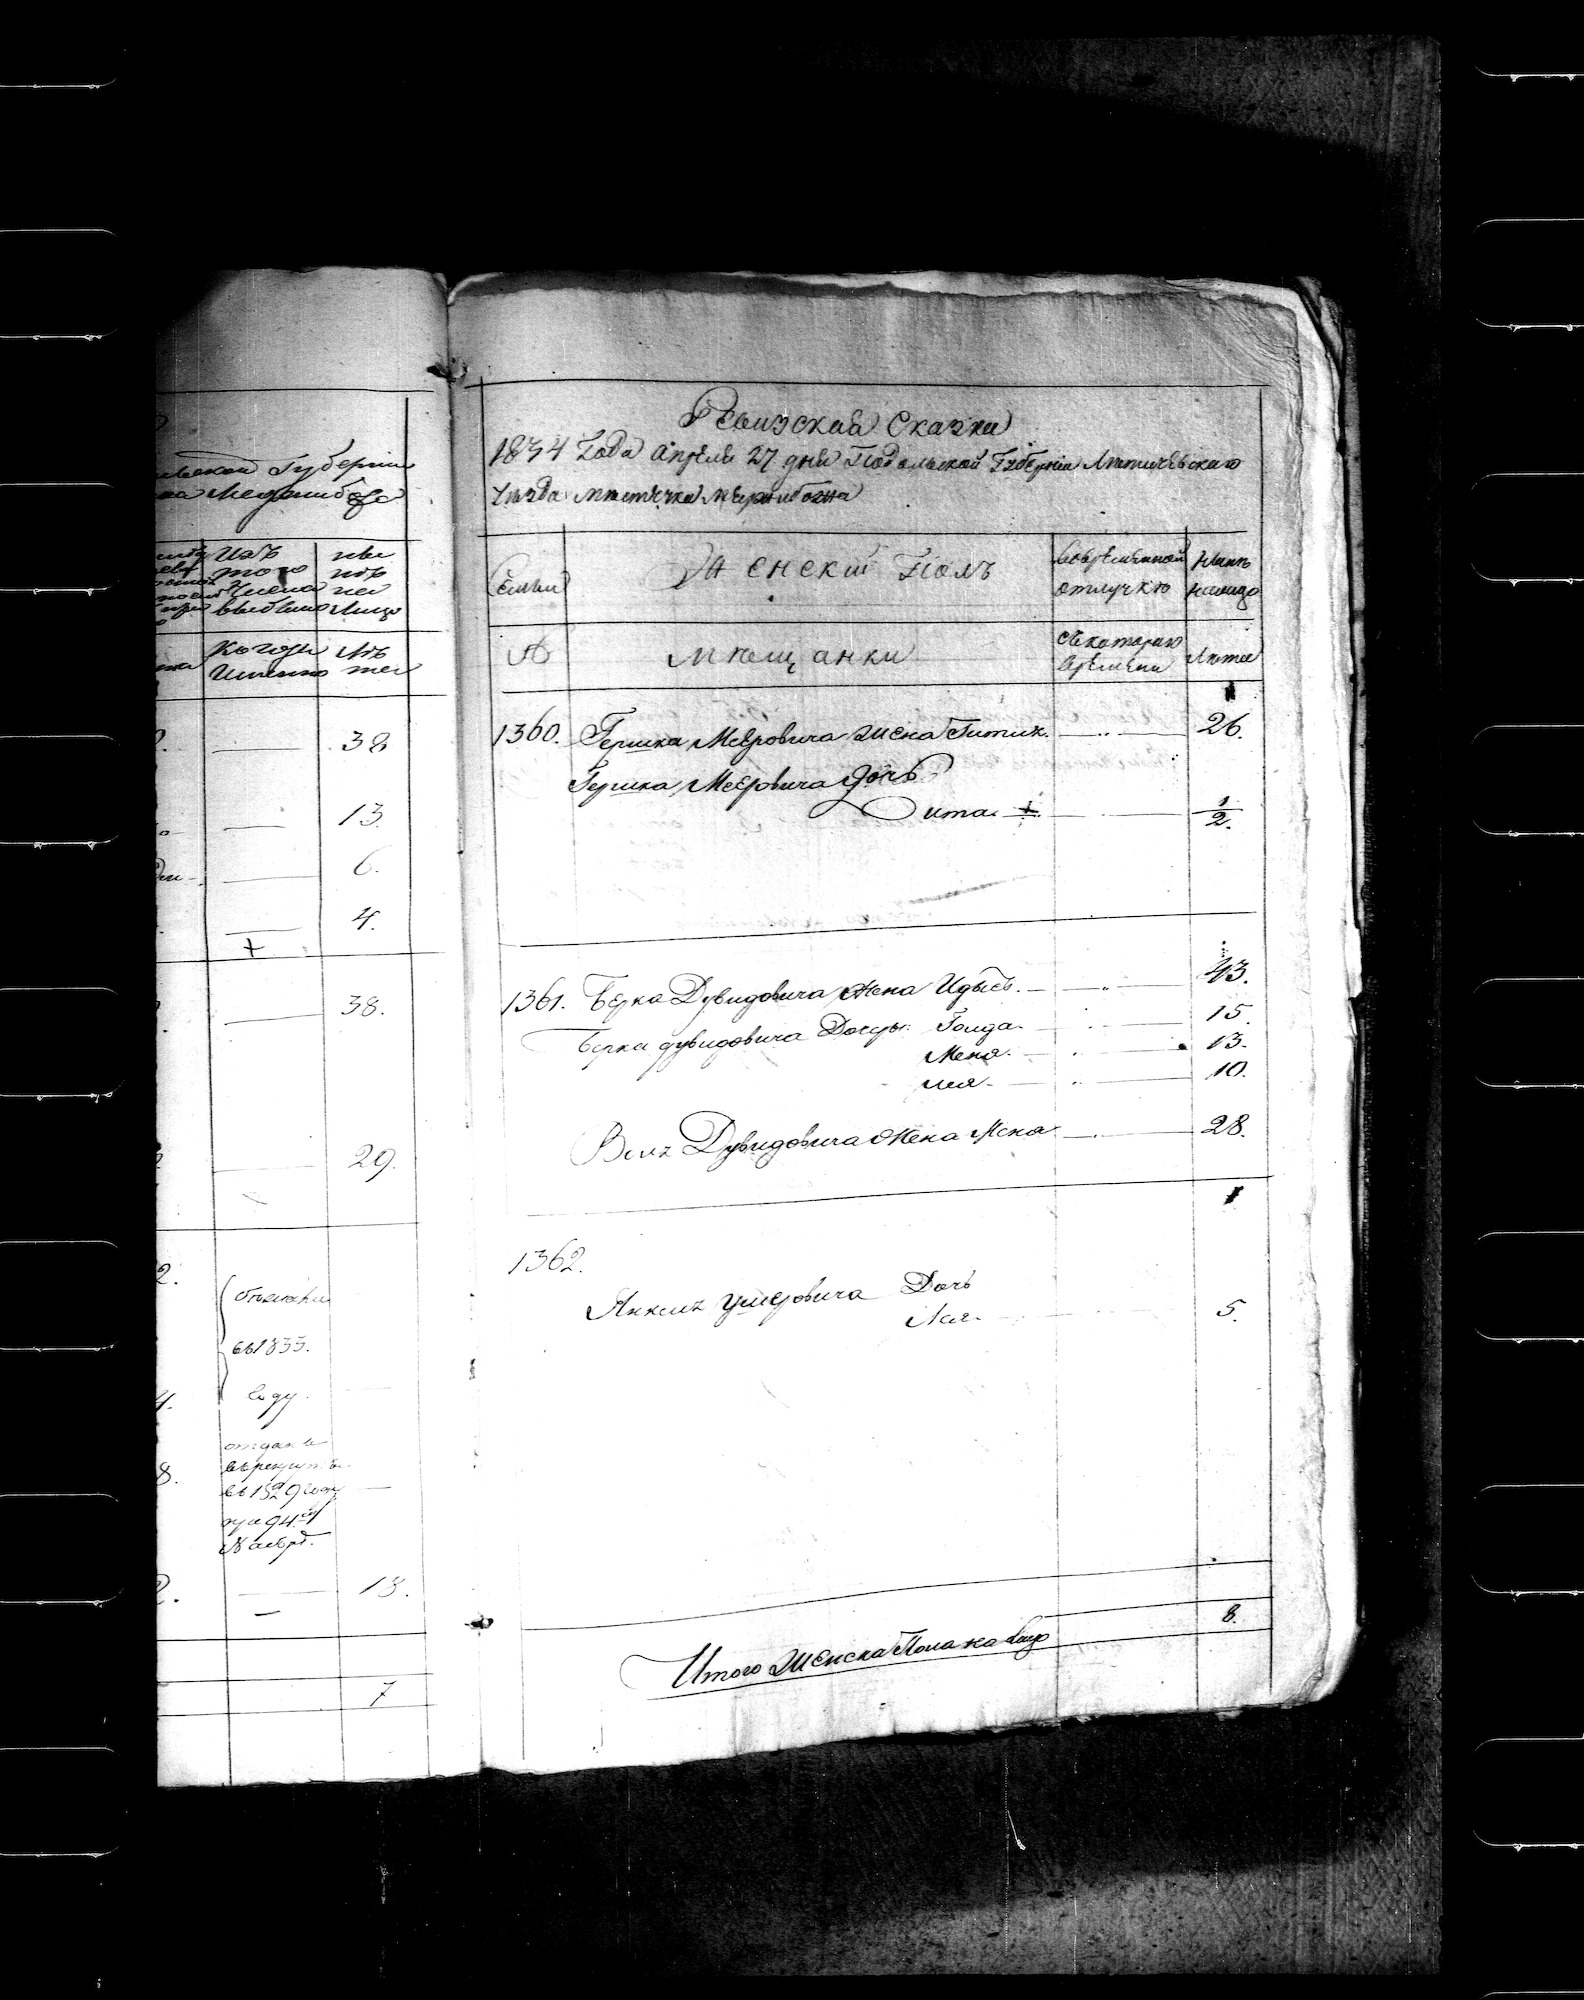 льской Губерніи
Меджибоже
изъ
того
числа
выбыло
ны
нѣ
на
лицо
когда
именно
лѣ
та
38
13.
6.
4.
+
38.
29.
2.
въ 1835.
году.
4.
8.
отданъ
въ рекруты
въ 1829 году
Наябр.
18.
7
Ревизская Сказка
1834 Года Апрѣля 27 дня Подольской Губерніи Летичевскаго
Уѣзда мѣстечка Межибожа
Семьи
Женский Полъ
Во временной
отлучкѣ
Нынѣ
на лицо
№
мѣщанки
Съ котораго
времени
Лѣта
1360. Гершка Меэровича жена Гитля. 26.
Гершка Меэровича дочь
Сита. + 1/2.
1361. Берка Дувидовича жена Идысь. 43.
Берка дувидовича Дочери: Голда. 15.
Меня. 13.
Лея. 10.
Волъ Дувидовича жена Меня 28.
1362.
Янкель Ушеровича Дочь
Лея. 5.
Итого женска Пола на лицо 8.